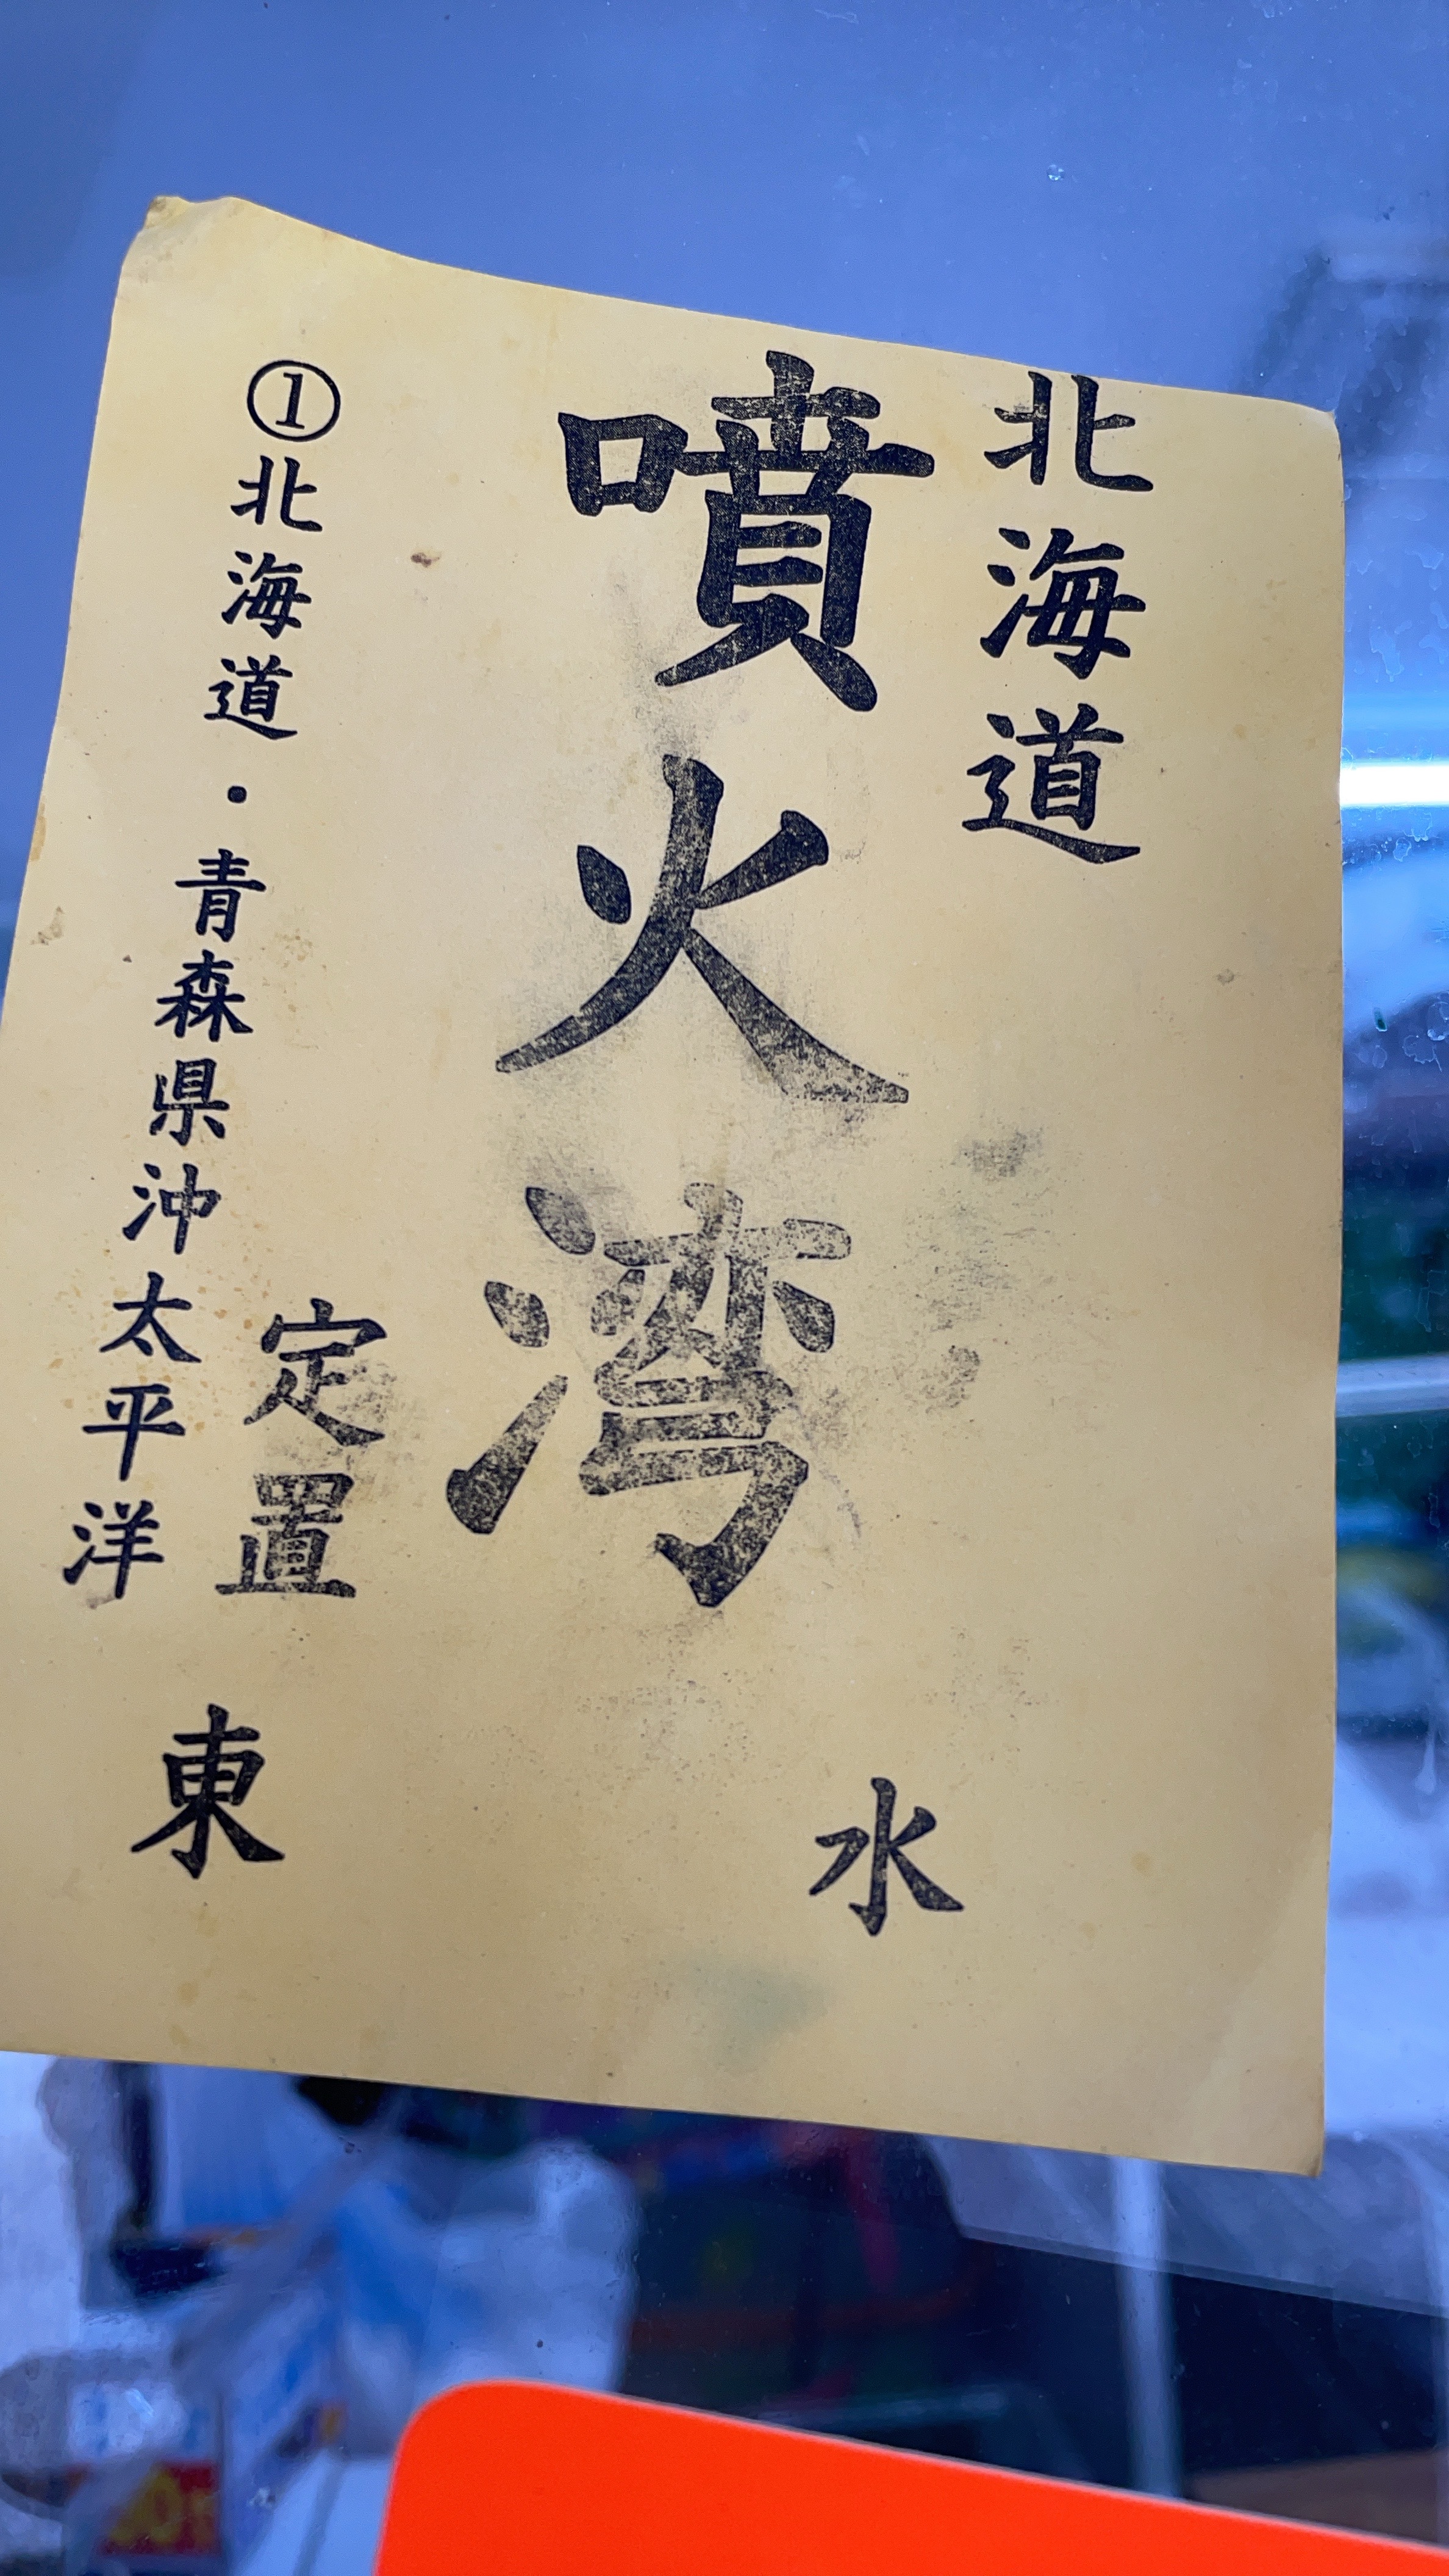 北海道
噴火湾
水
定置
東
①北海道・青森県沖太平洋